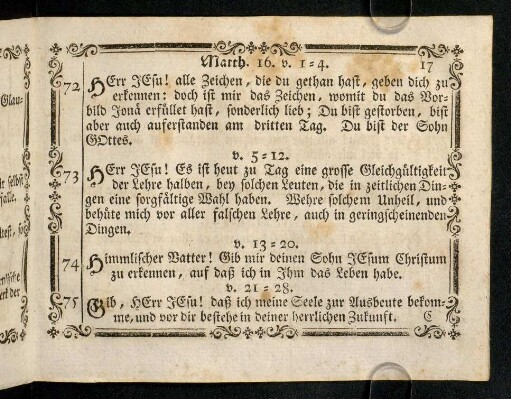 Matth. 16. v. 1=4. 17
72 HErr JEsu! alle Zeichen, die du gethan hast, geben dich zu
erkennen: doch ist mir das Zeichen, womit du das Vor-
bild Jonä erfüllet hast, sonderlich lieb; Du bist gestorben, bist
aber auch auferstanden am dritten Tag. Du bist der Sohn
GOttes.
v. 5=12.
73 HErr JEsu! Es ist heut zu Tag eine grosse Gleichgültigkeit
der Lehre halben, bey solchen Leuten, die in zeitlichen Din-
gen eine sorgfältige Wahl haben. Wehre solchem Unheil, und
behüte mich vor aller falschen Lehre, auch in geringscheinenden
Dingen.
v. 13=20.
74 Himmlischer Vatter! Gib mir deinen Sohn JEsum Christum
zu erkennen, auf daß ich in Ihm das Leben habe.
v. 21=28.
75 Gib, HErr JEsu! daß ich meine Seele zur Ausbeute bekom-
me, und vor dir bestehe in deiner herrlichen Zukunft. C